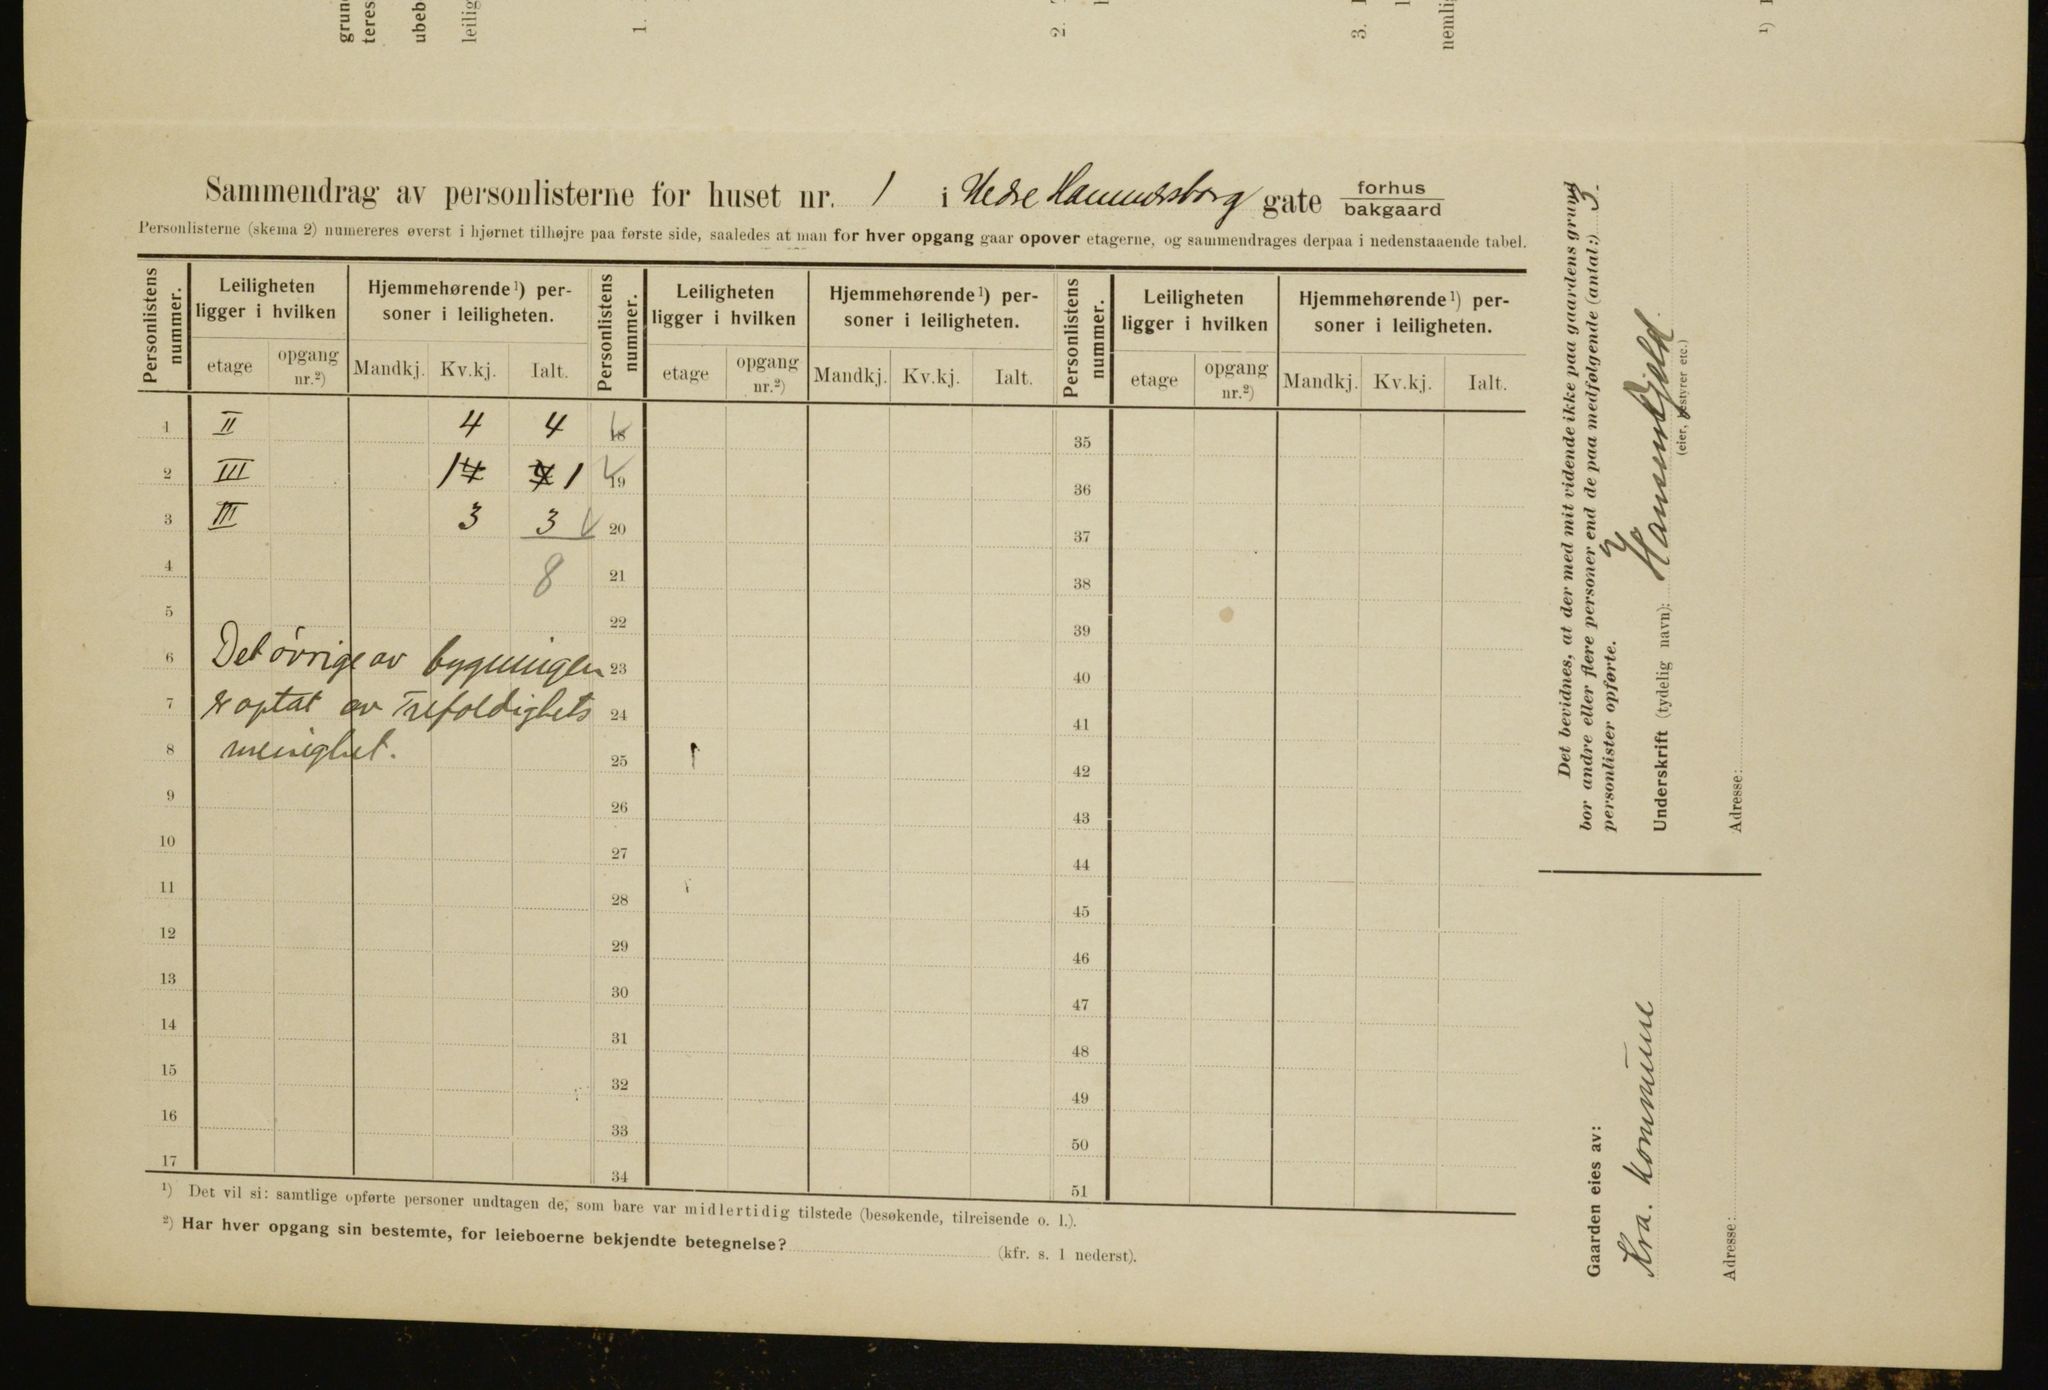 grun
teres
ubeb
leilig
1.
2.
3.
nemlig
¹)
Sammendrag av personlisterne for huset nr. 1 i Nedre Hammersborg gate forhus
bakgaard
Personlisterne (skema 2) numereres øverst i hjørnet tilhøjre paa første side, saaledes at man for hver opgang gaar opover etagerne, og sammendrages derpaa i nedenstaaende tabel.
Personlistens nummer. Leiligheten ligger i hvilken Hjemmehørende¹) personer i leiligheten. Personlistens nummer. Leiligheten ligger i hvilken Hjemmehørende¹) personer i leiligheten. Personlistens nummer. Leiligheten ligger i hvilken Hjemmehørende¹) personer i leiligheten.
etage opgang nr.²) Mandkj. Kv.kj. Ialt. etage opgang nr.²) Mandkj. Kv.kj. Ialt. etage opgang nr.²) Mandkj. Kv.kj. Ialt.
1 II 4 4 18 35
2 III 1 4 4 1 19 36
3 III 3 3 20 37
4 8 21 38
5 22 39
6 Det övrige av bygningen 23 40
7 er optat av Trefoldighets 24 41
8 menighet. 25 42
9 26 43
10 27 44
11 28 45
12 29 46
13 30 47
14 31 48
15 32 49
16 33 50
17 34 51
¹) Det vil si: samtlige opførte personer undtagen de, som bare var midlertidig tilstede (besøkende, tilreisende o. l.).
²) Har hver opgang sin bestemte, for leieboerne bekjendte betegnelse? (kfr. s. 1 nederst).
Det bevidnes, at der med mit vidende ikke paa gaardens grund
bor andre eller flere personer end de paa medfølgende (antal:) 3.
personlister opførte.
Underskrift (tydelig navn):
(eier, bestyrer etc.)
Adresse:
Gaarden eies av:
Kra. kommune
Adresse: